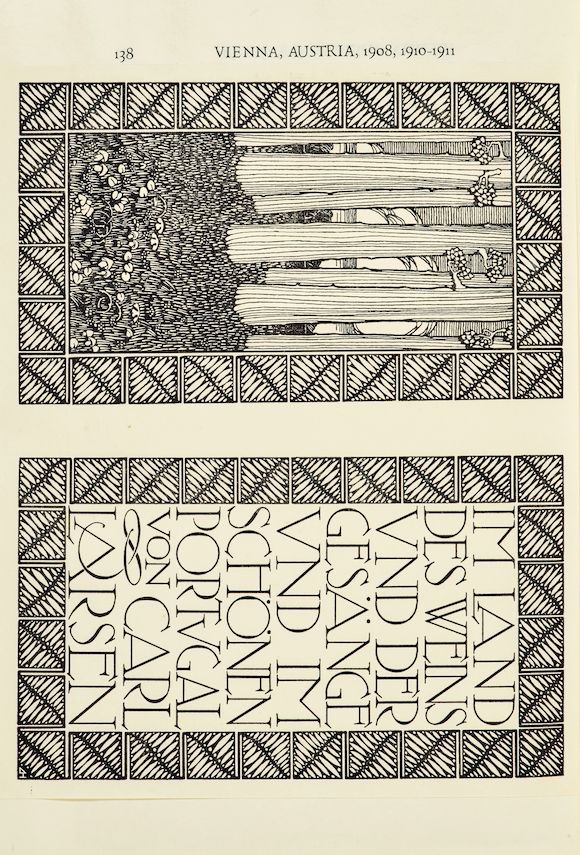 138 VIENNA, AUSTRIA, 1908, 1910–1911
IM LAND
DES WEINS
VND DER
GESÄNGE
VND IM
SCHÖNEN
PORTVGAL
VON CARL
LARSEN